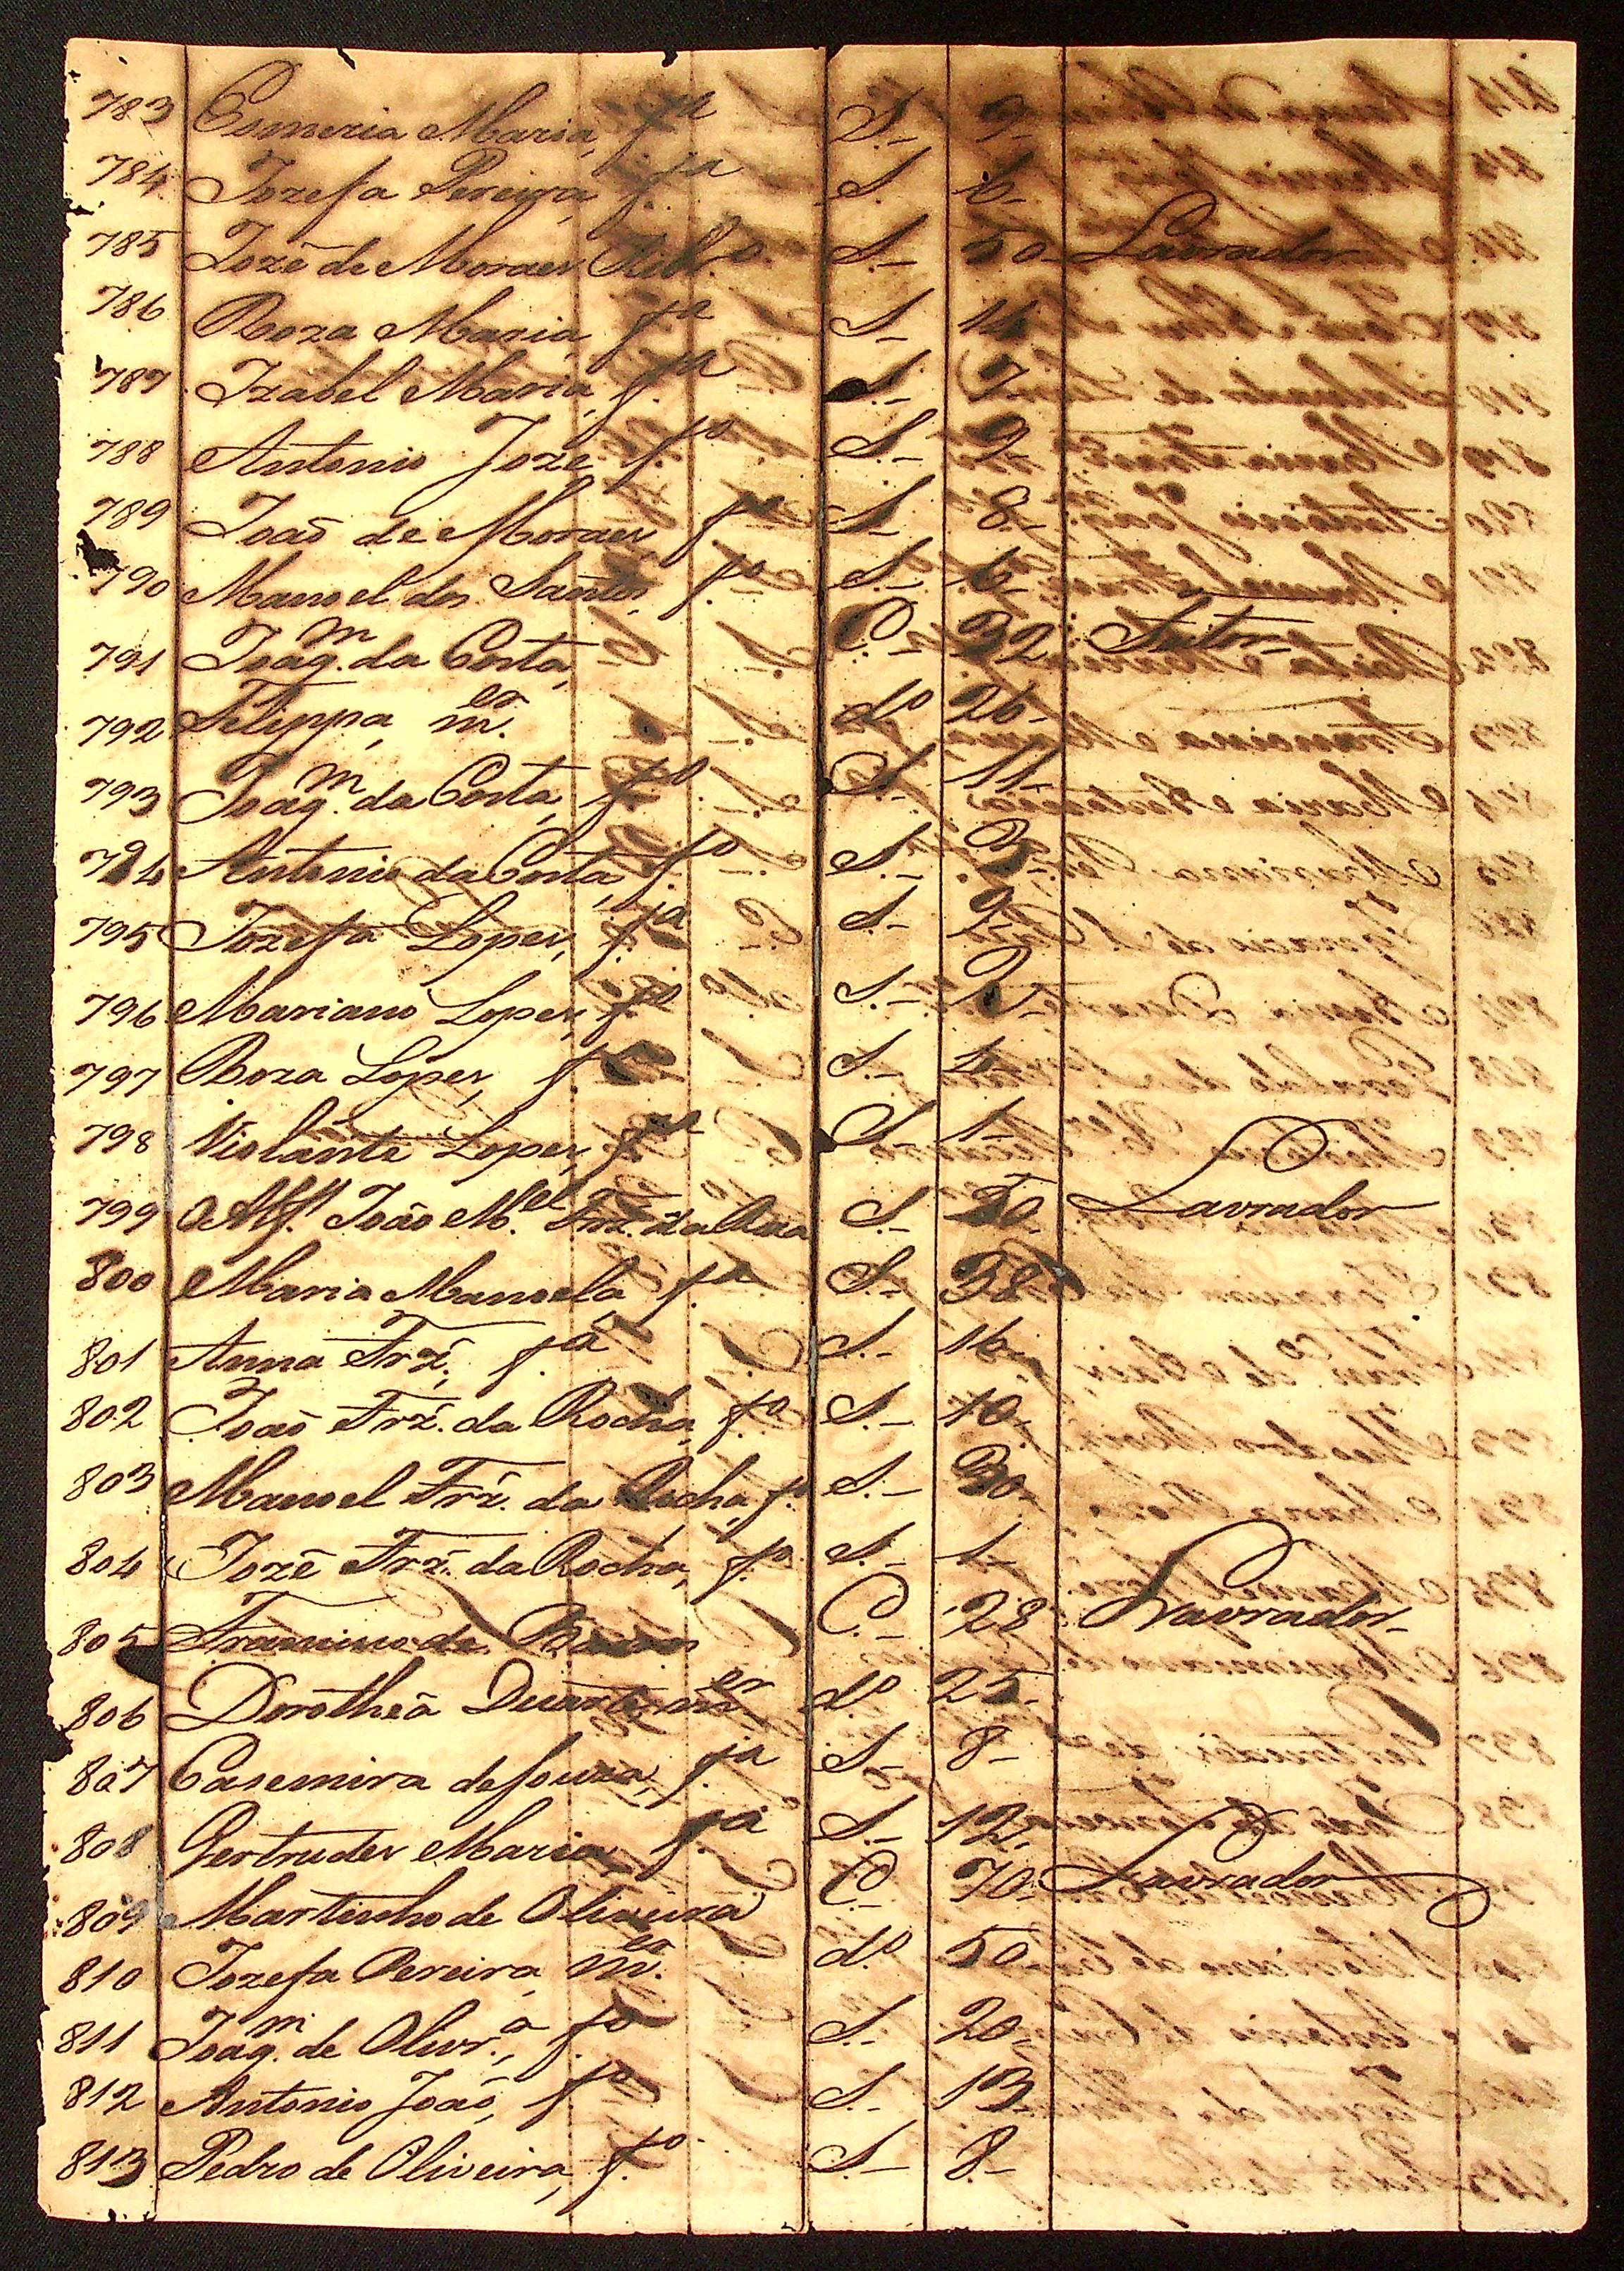 783 Esmeria Maria, f.ª S.- 9-
784 Jozefa Pereira, f.ª S. 6-
785 Jozé de Moraes Rib.º S.- 50- Lavrador
786 Roza Maria, f.ª S.- 14
787 Izabel Maria, f.ª S.- 7
788 Antonio Joze, f.º S.- 9-
789 João de Moraes f.º S.- 8-
790 Manoel dos Santos, f.º S.- 6-
791 Joaq.m da Costa, C.- 32 Feitor-
792 Felippa, m.er d.º 26-
793 Joaq.m da Costa, f.º S.- 11-
794 Antonio da Costa, f.º S.- 3-
795 Jozefa Lopes, f.ª S.- 9-
796 Mariano Lopes, f.º S.-
797 Roza Lopes, f.ª S.-
798 Violante Lopes, f.ª S.- 1-
799 O Alf.s João M.el Frz. da S.- 50- Lavrador
800 Maria Manoela, f.ª S.- 58
801 Anna Frz., f.ª S.- 16-
802 João Frz. da Rocha, f.º S.- 10-
803 Manoel Frz. da Rocha, f.º S.- 30-
804 Jozé Frz. da Rocha, f.º S.- 1-
805 de Barros C.- 28 Lavrador-
806 Dorothea Duarte, m.er d.º 25-
807 Casemira de Souza, f.ª S- 8-
808 Gertrudes Maria, f.ª S.- 12-
809 Martinho de Oliveira C.- 70- Lavrador
810 Jozefa Pereira, m.er d.º 50
811 Joaq.m de Olivr.ª, f.º S.- 20-
812 Antonio João, f.º S.- 13
813 Pedro de Oliveira, f.º S.- 8-